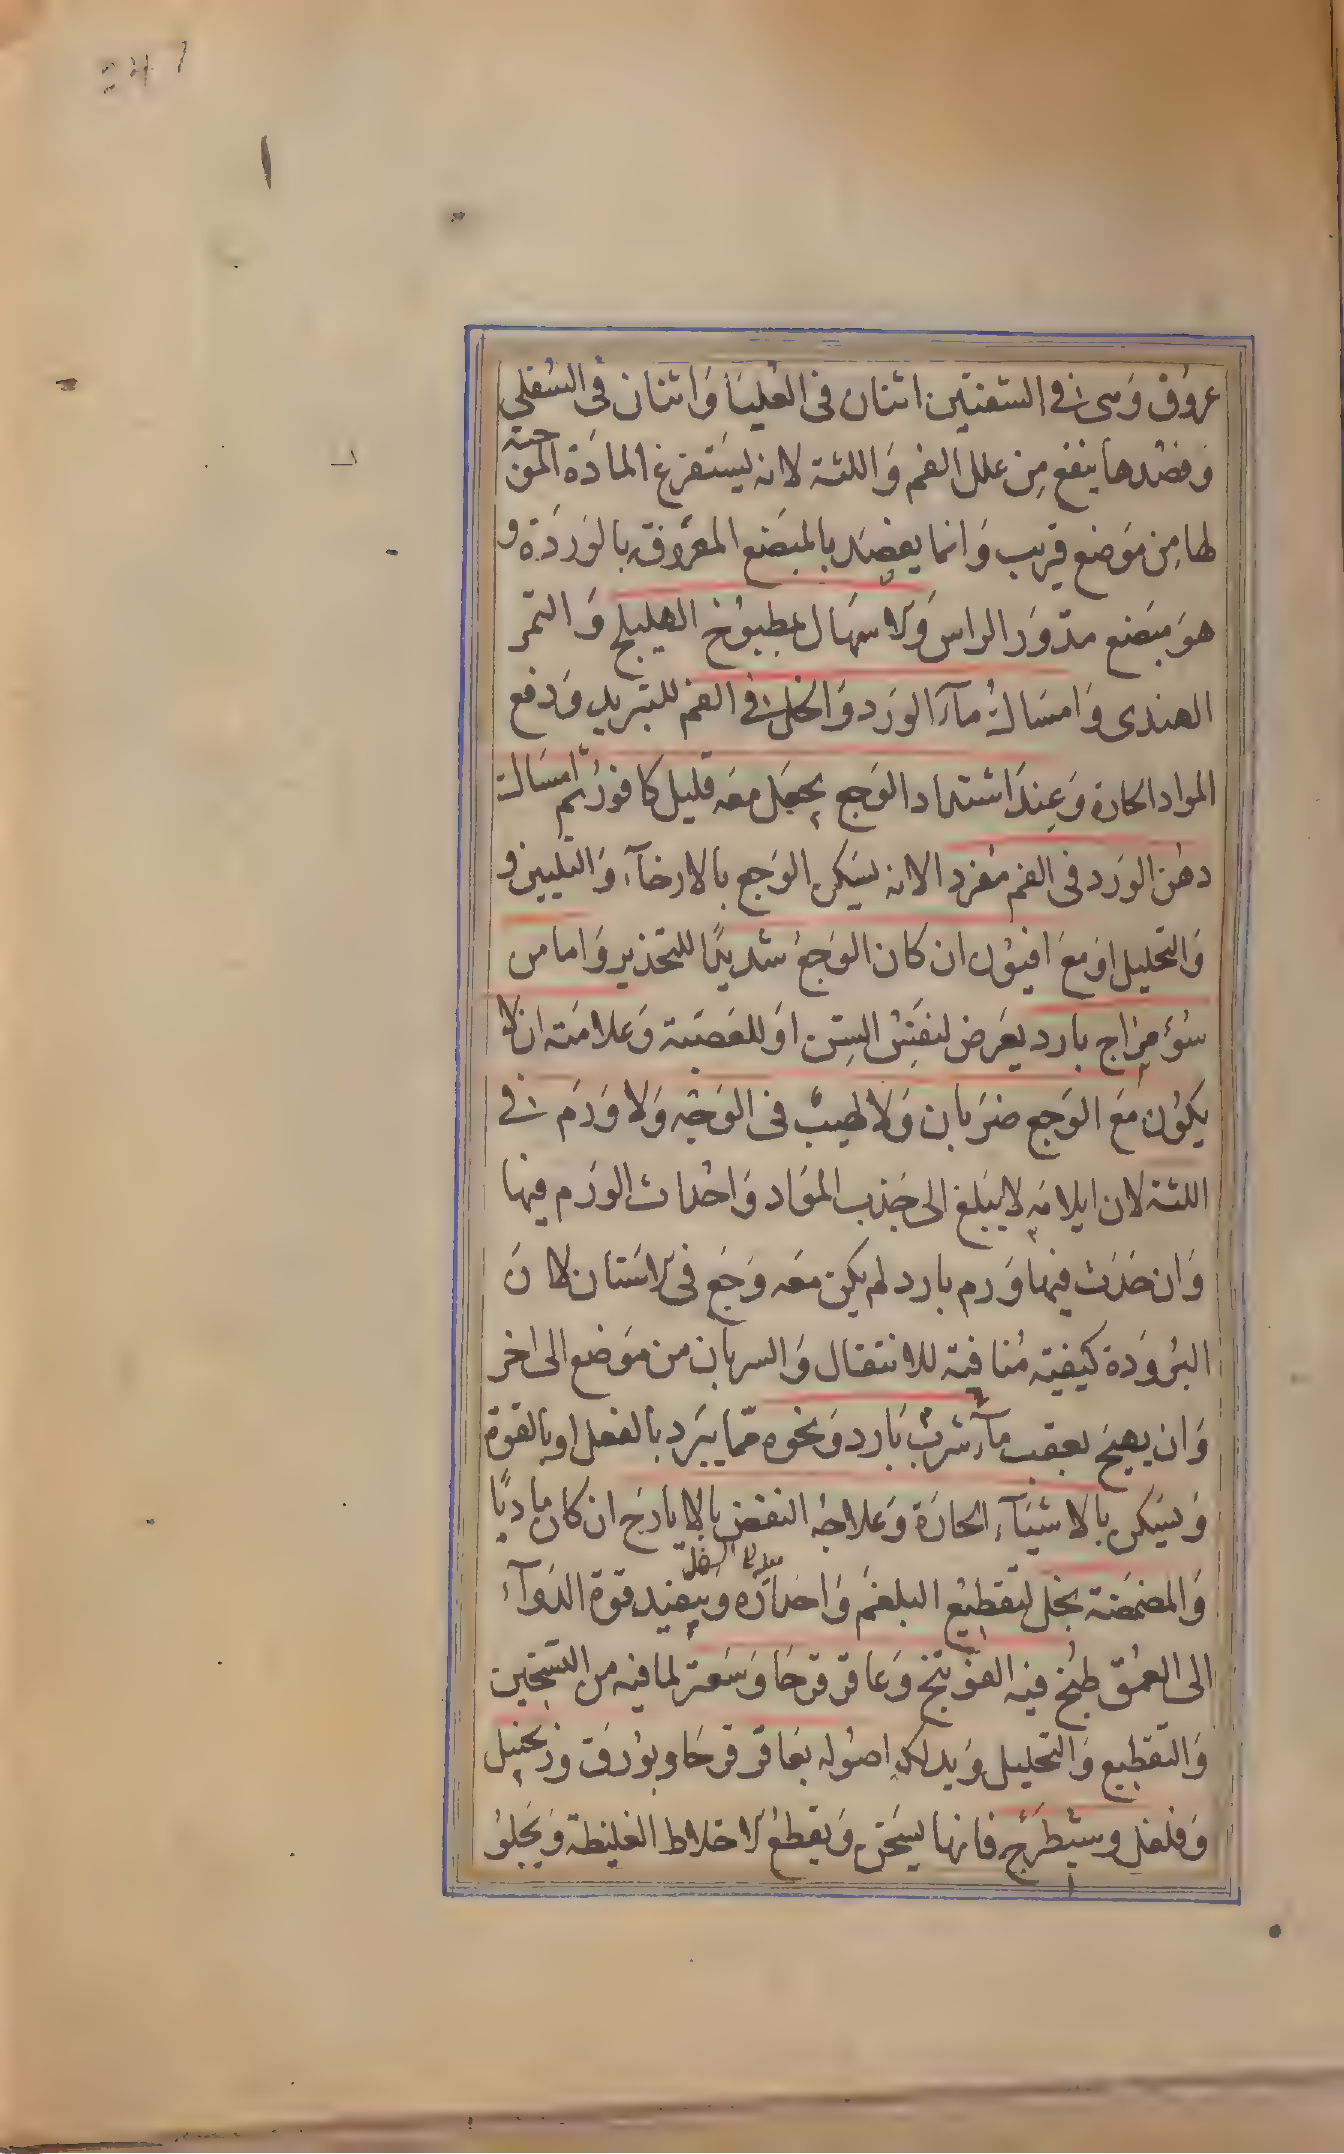 عروق وهى فى الشفتين اثنان فى العُليا وَاثنان فى السُفلى
وَفصْدها ينفع مِن علل الفم وَاللثة لانه يَستفرغ المادَة الموجبة
لها مِن مَوضع قريب وَانما يفصَد بالمبضَع المعرُوف بالوَردَة و
هوَ مبَضع مدوَر الراس وَالاسهَال بمطبوُخ الهليلج وَالتمر
الهندى وَامسَاك مآء الوَرد وَالخل فى الفم للتبريد وَدفع
المواد الحارة وَعِند اشتداد الوَجع يجعَل معَه قليل كافورُ ثم امسَاك
دهُن الورَد فى الفم مفرد الانه يسَكن الوَجع بالارخآء وَالتليين و
وَالتحليل اوَ معَ افيوُن ان كان الوَجعُ شديدًا للتخذير وَاما من
سُوء مِزاج بارد يعَرض لنفسَ السِن اوَ للعَصَبة وَعلامَته ان لا
يكوُن معَ الوَجع ضرَبان وَلا لهيبٌ فى الوَجه وَلا وَرَم فى
اللثة لان ايلامَه لا يبَلغ الى جَذب الموَاد وَاحْداث الورَم فيها
وَان حَدَث فيها وَرم بارد لم يكن معَه وَجَع فى الاسَنان لان
البرُودَة كيفية مُنافية للانتقال وَالسريان من موَضع الى اخر
وَان يهيجَ بعقب مآء شربٌ بَارد وَنحوه ممّا يبَرد بالفعل او بالقوة
وَيسَكن بالاشيَآء الحارَة وَعلاجهُ النفض بالايارَج ان كان مادِيًا
وَالمضمَضة بخل لتقطيع البلغمَ وَاحدَاره وينفيذ قوة الدوَآء
الى العمُق طبُخ فيه الفوَّتنج وَعاقر قرحَا وَسَعتر لما فيه من التسخين
وَالتقطيع وَالتحليل وَيدلك اصُوله بعَاقر قرحَا وبوُرَق وزنجَبيل
وَفلفل وشيطَرَج فانها يسَخن وَيقطعُ الاخلاط الغليظة وَيجَلو